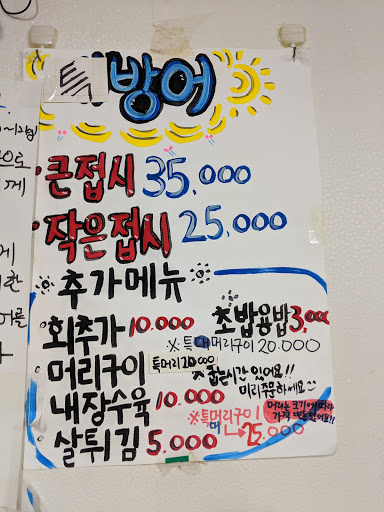 특 방어
큰접시 35,000
작은접시 25,000
추가메뉴
회추가 10.000
초밥용밥 3,000
※특대머리구이 20.000
머리구이
특머리
※ 굽는시간 있어요!!
미리주문하세요
내장수육 10.000
※특머리구이
대
25.000
머리는 크기에 따라
가격 변동있어요!!
살튀김 5.000